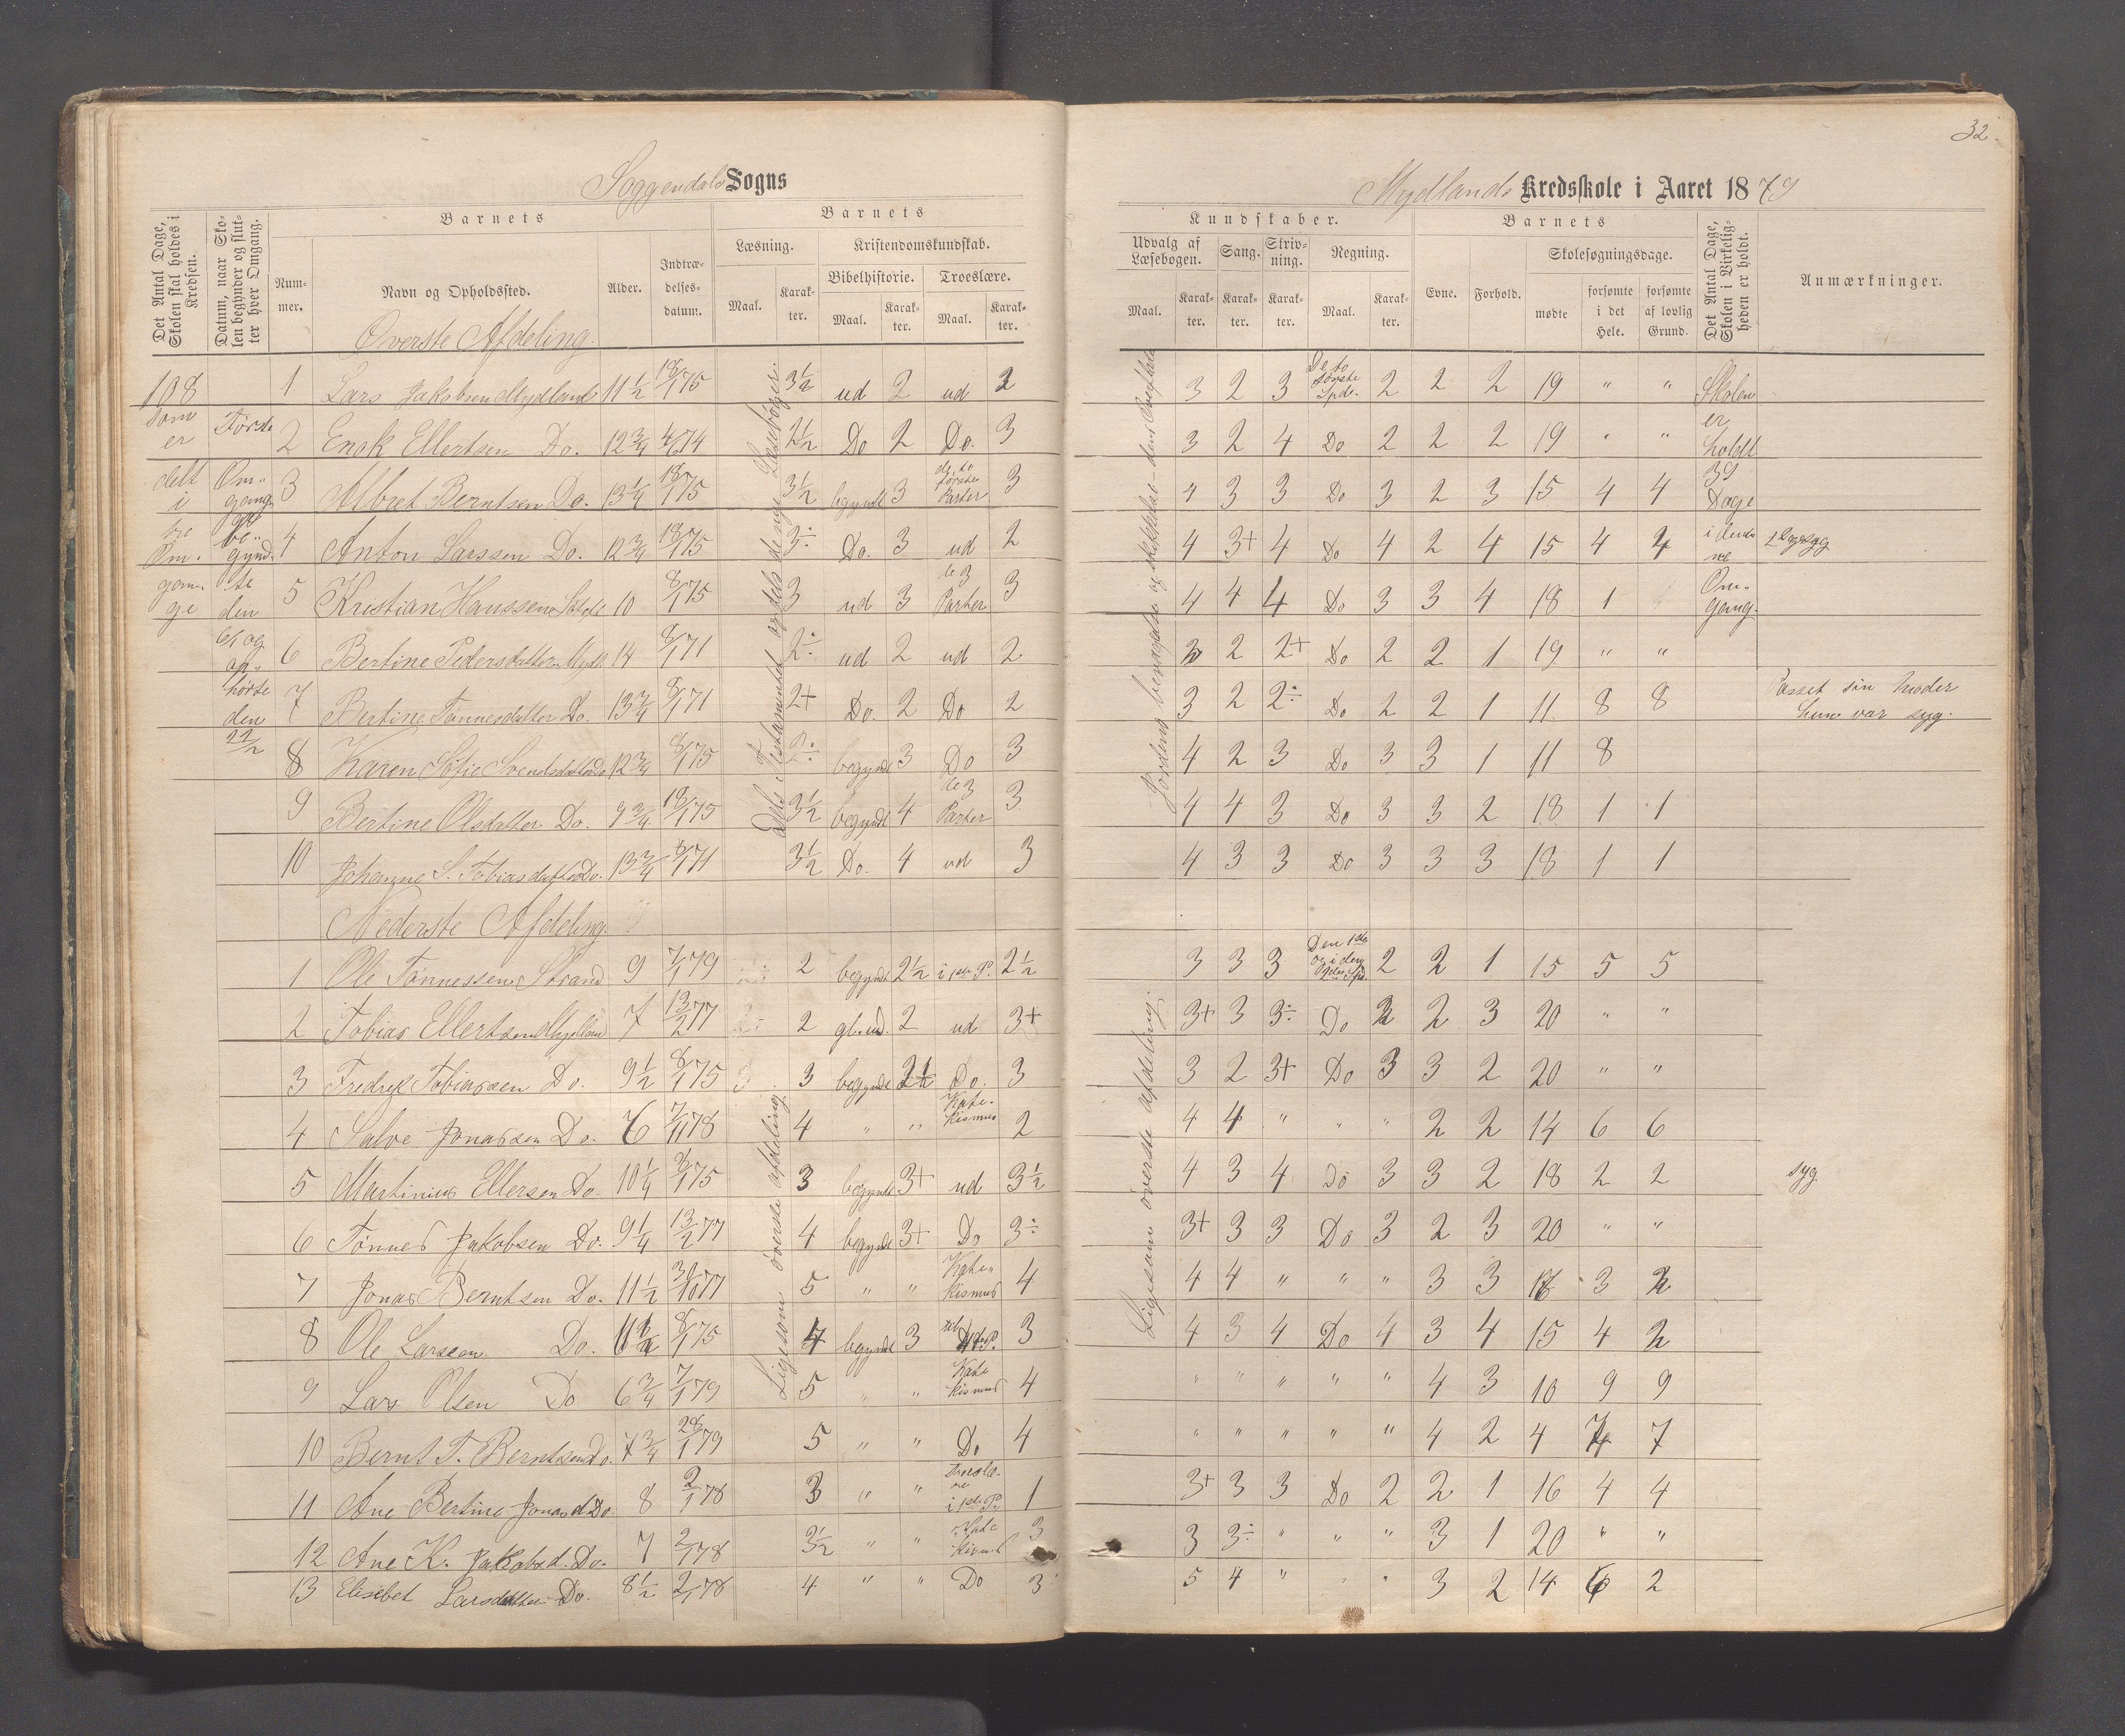 32.
Soggendals Sogns
Mydlands Kredsskole i Aaret 1879
Det Antal Dage, Skolen skal holdes i Kredsen.
Datum, naar Skolen begynder og slutter hver Omgang.
Barnets
Nummer.
Navn og Opholdssted.
Alder.
Indtrædelsesdatum.
Barnets
Læsning.
Maal.
Karakter.
Kristendomskundskab.
Bibelhistorie.
Maal.
Karakter.
Troeslære.
Maal.
Karakter.
Kundskaber.
Udvalg af Læsebogen.
Maal.
Karakter.
Sang.
Karakter.
Skrivning.
Karakter.
Regning.
Maal.
Karakter.
Barnets
Evne.
Forhold.
Skolesøgningsdage.
mødte
forsømte i det Hele.
forsømte af lovlig Grund.
Det Antal Dage, Skolen i Virkeligheden er holdt.
Anmærkninger.
108 som er delt i tre Om- gan- ge
Første Om- gang be- gynd- te den 6/1 og op- hørte den 22/2
Øverste Afdeling.
1 Lars Jakobsen Mydland 11 1/2 18/1 75 3 1/2 ud 2 ud 2 3 2 3 De to første Spds. 2 2 2 19 " "
2 Enok Ellertsen Do. 12 3/4 74 2 1/2 Do 2 Do. 3 3 2 4 Do 2 2 2 19 " "
3 Albret Berntsen Do. 13 1/4 18/1 75 3 1/2 begyndt 3 de to første Parter 3 4 3 3 Do 3 2 3 15 4 4
4 Anton Larssen Do. 12 3/4 18/1 75 3÷ Do. 3 ud 2 4 3+ 4 Do 4 2 4 15 4 4
5 Kristian Hanssen 10 8/1 75 3 ud 3 de 3 Parter 3 4 4 4 Do 3 3 4 18 1
6 Bertine Pedersdatter Mydl 14 8/1 71 2÷ ud 2 ud 2 2 2+ Do 2 2 1 19 " "
7 Bertine Tønnesdatter Do. 13 3/4 8/1 71 2+ Do. 2 Do 2 3 2 2÷ Do 2 2 1 11 8 8 Passet sin moder hun var syg.
8 Karen Sofie Svendsdatter Do 12 3/4 8/1 75 2÷ begyndt 3 Do 3 4 2 3 Do 3 3 1 11 8
9 Bertine Olsdatter Do. 9 3/4 18/1 75 3 1/2 begyndt 4 de 3 Parter 3 4 4 3 Do 3 3 2 18 1 1
10 Johanne S. Tobiasdatter Do. 13 3/4 8/1 71 3 1/2 Do. 4 ud 3 4 3 3 Do 3 3 3 18 1 1
Dels Testamentet og dels denge Læsebøger.
Jordens bevægelse og skikkelse - dens Overflade
Skolen er holdt 39 Dage i denne Om- gang.
Nederste Afdeling.
1 Ole Tønnessen Strand 9 7/1 79 2 begyndt 2 1/2 i 1ste P. 2 1/2 3 3 3 Den 1ste og i den 2den Spd. 2 2 1 15 5 5
2 Tobias Ellertsen Mydland 7 13/2 77 2 gl. ud. 2 ud 3+ 3+ 3 3÷ Do 2 2 3 20 " "
3 Fredrik Tobiassen Do. 9 1/2 8/1 75 3 begyndt 2 1/2 Do. 3 3 2 3+ Do 3 3 2 20 " "
4 Salve Jonassen Do. 6 7/11 78 4 " " Kate- kismus 2 4 4 " " " 2 2 14 6 6
5 Martinius Ellersen Do. 10 1/4 8/1 75 3 begyndt 3+ ud 3 1/2 4 3 4 Do 3 3 2 18 2 2 syg.
6 Tønnes Jakobsen Do. 9 1/4 13/2 77 4 begyndt 3+ Do 3÷ 3+ 3 3 Do 3 2 3 20 " "
7 Jonas Berntsen Do. 11 1/2 30/10 77 5 " " Kate- kismus 4 4 4 " " " 3 3 16 3 2
8 Ole Larssen Do. 8/1 75 4 begyndt 3 3 4 3 4 Do 4 3 4 15 4 2
9 Lars Olsen Do 6 3/4 7/1 79 5 " " Kate kismus 4 " " " " " 4 3 10 9 9
10 Bernt T. Berntsen Do. 7 3/4 28/1 79 5 " " Do 4 " " " " " 4 2 4 7 7
11 Ane Bertine Jonasd Do. 8 2/1 78 3 " " Troeslæ- re i 1ste P. 1 3+ 3 3 Do 2 2 1 16 4 4
12 Ane K. Jakobsd. Do. 7 2/1 78 3 1/2 " " Kate kismus 3 3 3÷ " " " 3 1 20 " "
13 Elisebet Larsdatter Do. 8 1/2 2/1 78 4 " " Do 3 5 4 " " " 3 2 14 6 2
Ligesom øverste afdeling
Ligesom øverste afdeling.